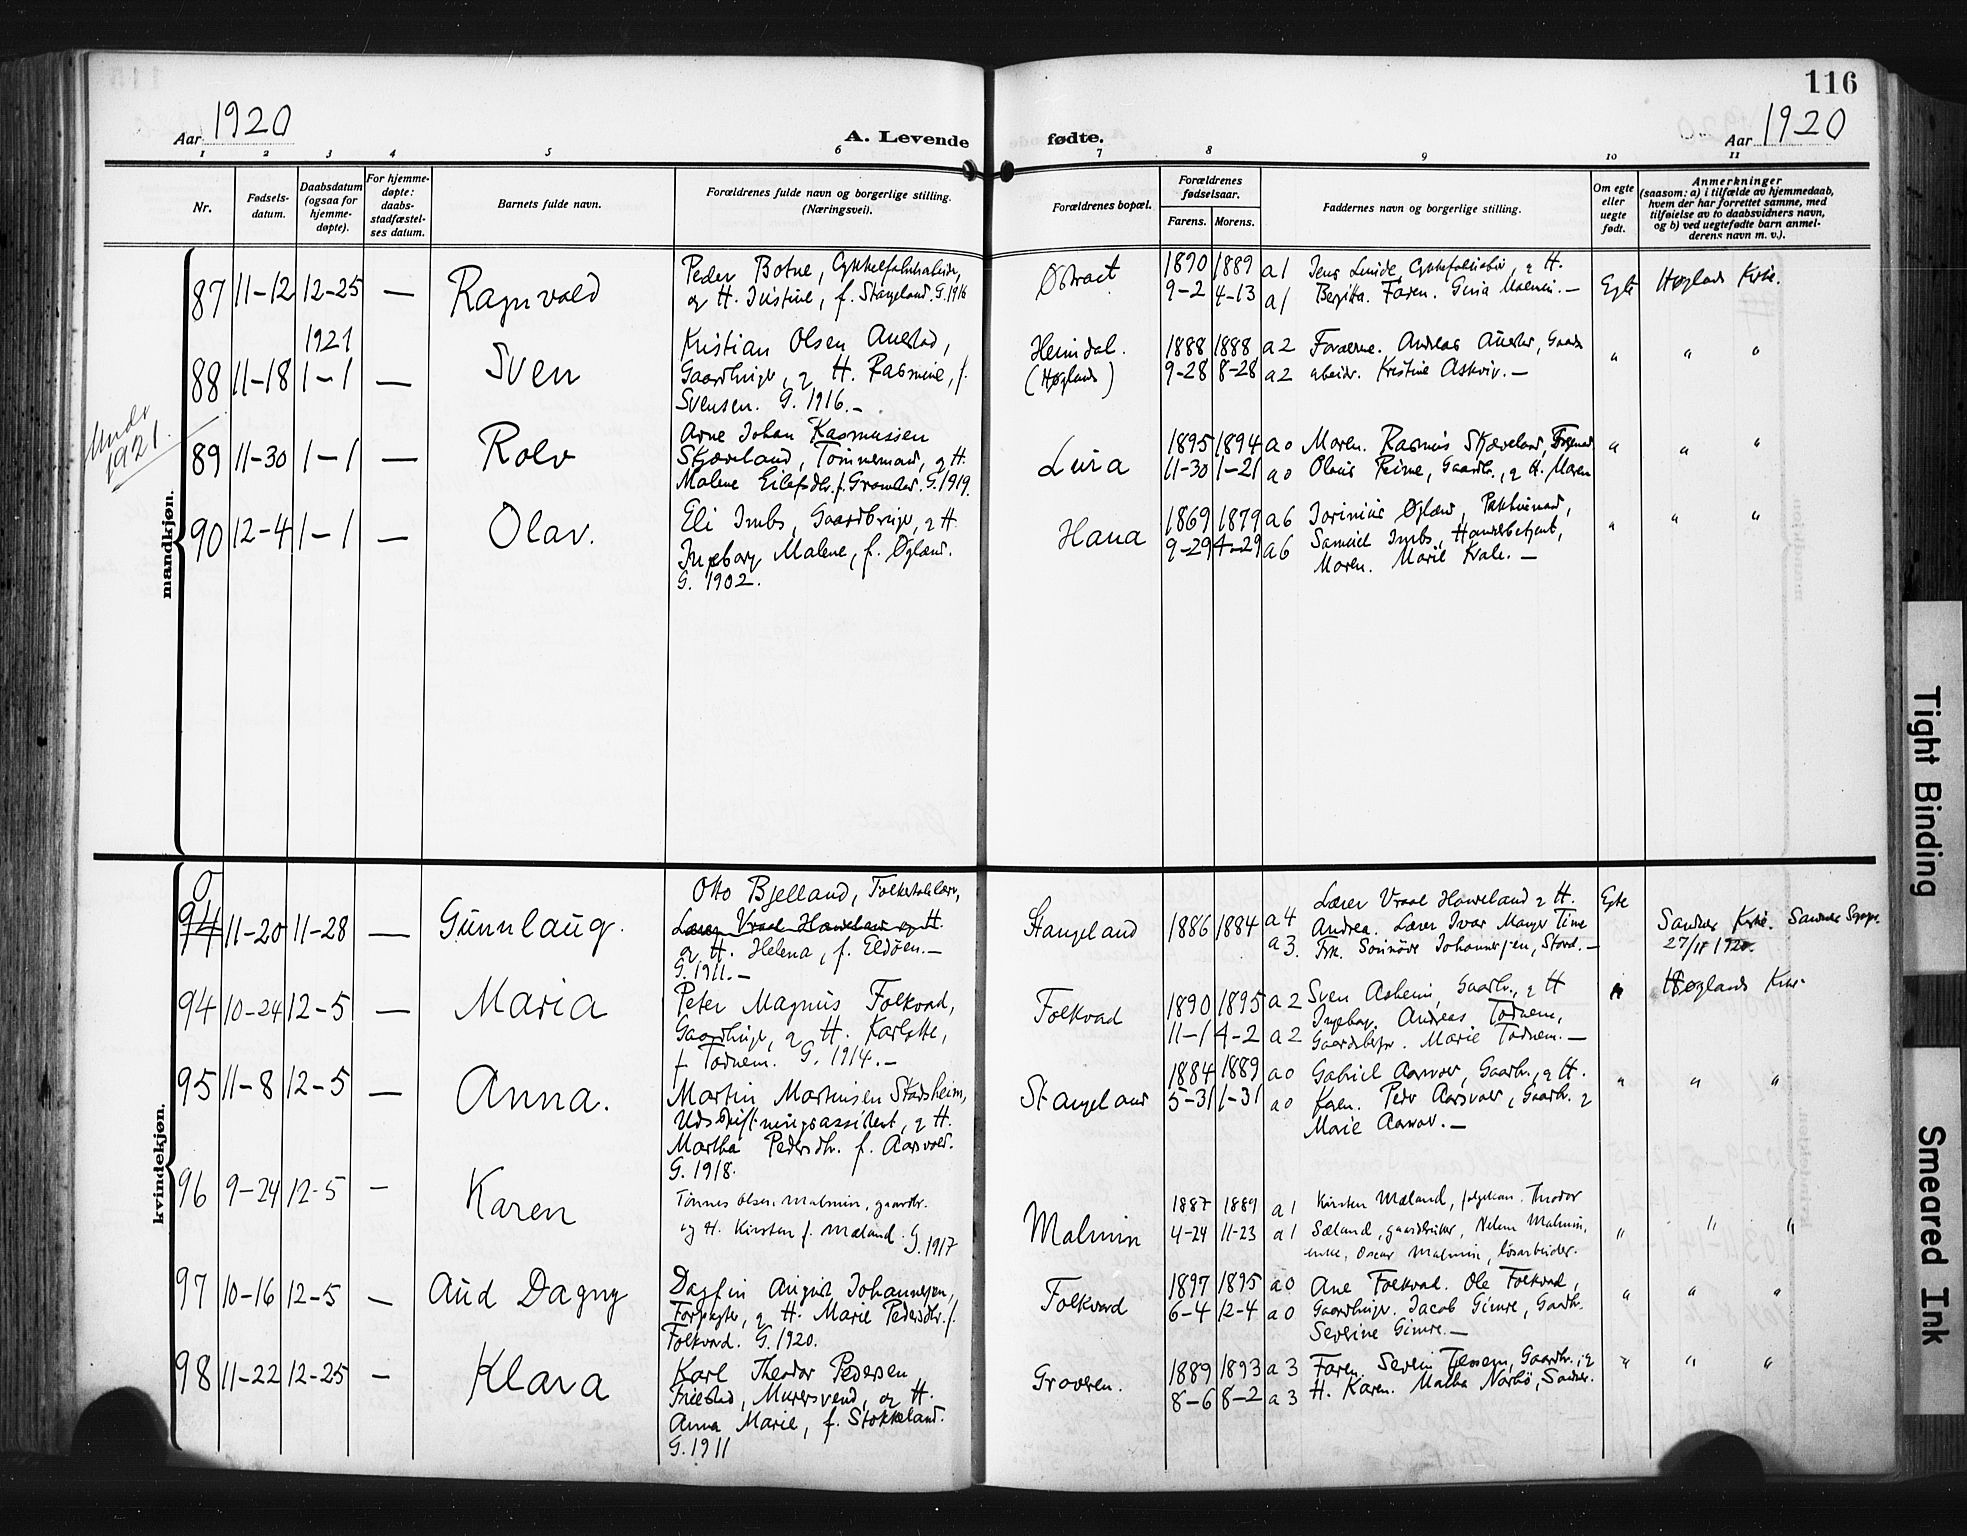 116
Aar 1920
A. Levende fødte.
Aar 1920
1 2 3 4 5 6 7 8 9 10 11
Nr.
Fødsels-
datum.
Daabsdatum
(ogsaa for
hjemme-
døpte).
For hjemme-
døpte:
daabs-
stadfæstel-
ses datum.
Barnets fulde navn.
Forældrenes fulde navn og borgerlige stilling.
(Næringsvei).
Forældrenes bopæl.
Forældrenes
fødselsaar.
Farens. Morens.
Faddernes navn og borgerlige stilling.
Om egte
eller
uegte
født.
Anmerkninger
(saasom: a) i tilfælde av hjemmedaab,
hvem der har forrettet samme, med
tilføielse av to daabsvidners navn,
og b) ved uegtefødte barn anmel-
derens navn m. v.).
mandkjøn.
1921.
87 11-12 12-25 — Ragnvald
Peder Botne,
og H. Justine, f. Stangeland. G. 1916
1890 1889 a1
9-2 4-13 a1
Faren.
Egte
Høglands Kirke.
1921
88 11-18 1-1 — Sven
Kristian Olsen Auestad,
Gaardbruger, og H. Rasmine, f.
Svensen. G. 1916. —
Heimdal.
(Høgland)
1888 1888 a2
9-28 8-28 a2
Andreas
Kristine Askviv. —
" " "
89 11-30 1-1 — Rolv
Arne Johan Rasmussen
Skjæveland, Tømmermand, og H.
Malene G. 1919.
Lura
1895 1894 a0
11-30 1-21 a0
Moren. Rasmus Skjæveland,
Gaardbr., og H. Maren
" " "
90 12-4 1-1 — Olav.
Eli Imbs, Gaardbruger, og H.
Ingeborg Malene, f. Øgland.
G. 1902.
Hana
1869 1879 a6
9-29 4-29 a6
Øgland,
Samuel Imbs,
Moren. Marie Kvale. —
" " "
kvindekjøn.
0
94 11-20 11-28 — Gunnlaug.
Otto Bjelland,
Lærer Vraal Haweland og H.
og H. Helena, f. Eldøen. —
G. 1911. —
Stangeland
1886 1884 a4
a3.
Lærer Vraal Haweland og H.
Andrea. Lærer Ivar
Frk. Johannesen, Stord. —
Egte
27/11 1920.
94 10-24 12-5 — Maria
Peter Magnus Folkvord,
Gaardbruger, og H. Karlotte,
f Todnem. G. 1914. —
Folkvord
1890 1895 a2
11-1 4-2 a2
Sven Asheim, Gaardbr., og H
Ingeborg. Andreas Todnem,
Marie Todnem. —
"
Høglands Kirke
95 11-8 12-5 — Anna.
Martin Martinsen Stadsheim,
Udskiftningsassistent, og H.
Martha Pedersdtr. f. Aarsvold.
G. 1918.
Stangeland
1884 1889 a0
5-31 1-31 a0
Gabriel Aarsvold, Gaardbr., og H.
Peder Aarsvold, Gaardbr. og
Marie Aarsvold. —
" " "
96 9-24 12-5 — Karen
Tønnes Olsen Malmin, gaardbr.
og H. Kirsten f. Mæland. G. 1917
Malmin
1887 1889 a1
4-24 11-23 a1
Kirsten Mæland, Theodor
Sæland, gaardbruker, Malmin,
enke, Oscar Malmin, løsarbeider.
" " "
97 10-16 12-5 — Aud Dagny
Dagfin August Johannesen,
Forpagter, og H. Marie Pedersdtr. f.
Folkvord. G. 1920.
Folkvord
1897 1895 a0
6-4 12-4 a0
Ane Folkvord. Ole Folkvord,
Gaardbruger. Jacob Gimre, Gaardbr.
Severine Gimre. —
" " "
98 11-22 12-25 — Klara
Karl Theodor Pedersen
Friestad, Murersvend, og H.
Anna Marie, f. Stokkeland.
G. 1911
Graveren.
1889 1893 a3
8-6 8-2 a3
Faren. Gaardbr., og
H. Karen.
" " "
Tight Binding
Smeared Ink